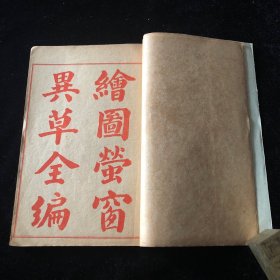 繪圖螢窗
異草全編